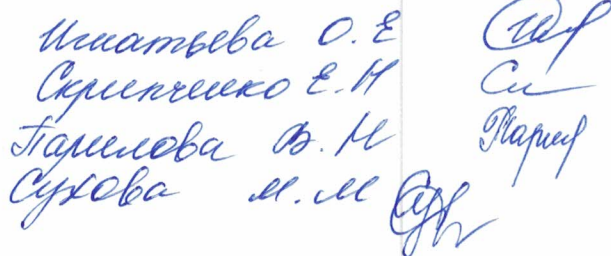 Игнатьева О.Е
Скрипченко Е.Н
Парилова В.Н
Сухова М.М